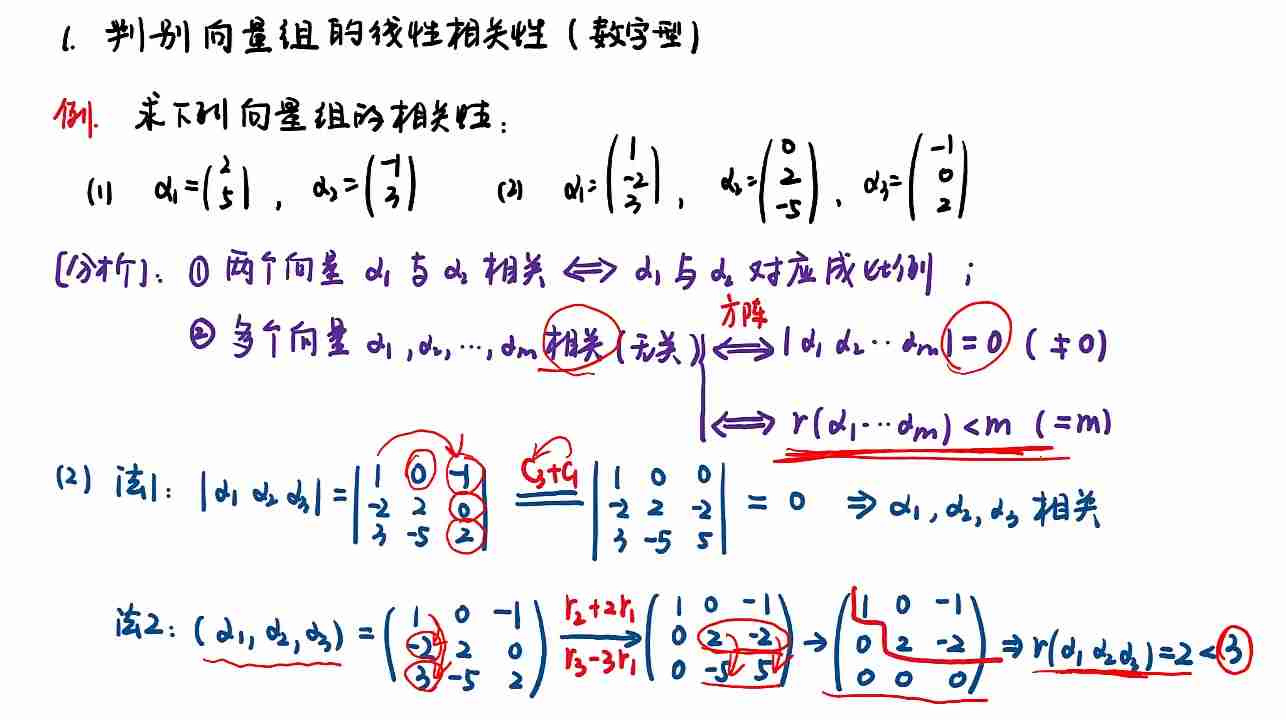 1. 判别向量组的线性相关性（数字型）
例. 求下列向量组的相关性：
(1) α₁=(2 5), α₂=(-1 3) (2) α₁=(1 -2 3), α₂=(0 2 -5), α₃=(-1 0 2)
[分析]: ① 两个向量 α₁ 与 α₂ 相关 ⟺ α₁ 与 α₂ 对应成比例 ;
② 多个向量 α₁,α₂,…,αm 相关(无关) 方阵 ⟺ |α₁ α₂ ⋯ αm|=0 (≠0)
⟺ r(α₁⋯αm)<m (=m)
(2) 法1: |α₁ α₂ α₃| = |1 0 -1; -2 2 0; 3 -5 2| C₃+C₁ = |1 0 0; -2 2 -2; 3 -5 5| = 0 ⇒ α₁,α₂,α₃ 相关
法2: (α₁,α₂,α₃) = (1 0 -1; -2 2 0; 3 -5 2) r₂+2r₁ r₃-3r₁ → (1 0 -1; 0 2 -2; 0 -5 5) → (1 0 -1; 0 2 -2; 0 0 0) ⇒ r(α₁ α₂ α₃)=2<3